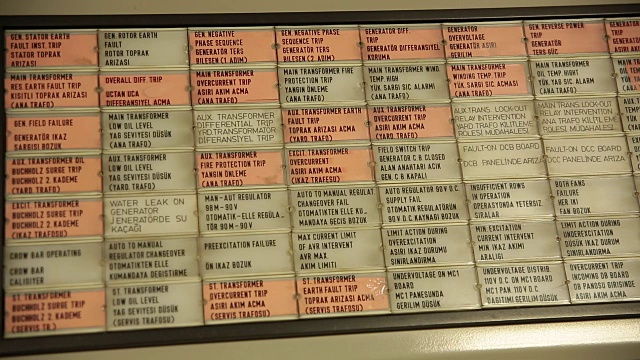 GEN. STATOR EARTH
FAULT INST. TRIP
STATOR TOPRAK
ARIZASI
GEN. ROTOR EARTH
FAULT
ROTOR TOPRAK
ARIZASI
GEN. NEGATIVE
PHASE SEQUENCE
GENERATÖR TERS
BİLEŞEN (1. ADIM)
GEN. NEGATIVE PHASE
SEQUENCE TRIP
GENERATÖR TERS
BİLEŞEN (2. ADIM)
GENERATOR DIFF.
TRIP
GENERATÖR DİFERANSİYEL
KORUMA
GENERATOR
OVERVOLTAGE
GENERATÖR AŞIRI
GERİLİM
GEN. REVERSE POWER
TRIP
GENERATÖR
TERS GÜÇ
MAIN TRANSFORMER
RES. EARTH FAULT TRIP
KISITLI TOPRAK ARIZASI
(ANA TRAFO)
OVERALL DIFF. TRIP
UÇTAN UCA
DİFERANSİYEL AÇMA
MAIN TRANSFORMER
OVERCURRENT TRIP
AŞIRI AKIM AÇMA
(ANA TRAFO)
MAIN TRANSFORMER FIRE
PROTECTION TRIP
YANGIN ÖNLEME
(ANA TRAFO)
MAIN TRANSFORMER WIND.
TEMP HIGH
YÜK. SARG. SIC. ALARM
(ANA TRAFO)
MAIN TRANSFORMER
WINDING TEMP. TRIP
YÜK. SARG. SIC. AÇMASI
(ANA TRAFO)
MAIN TRANSFORMER
OIL TEMP. HIGHT
YÜK. YAĞ SIC. ALARM
(ANA TRAFO)
GEN. FIELD FAILURE
GENERATÖR İKAZ
SARGISI BOZUK
MAIN TRANSFORMER
LOW OIL LEVEL
YAĞ SEVİYESİ DÜŞÜK
(ANA TRAFO)
AUX. TRANSFORMER
DIFFERENTIAL TRIP
YRD. TRANSFORMATÖR
DİFERANSİYEL TRİP
AUX. TRANSFORMER EARTH
FAULT TRIP
TOPRAK ARIZASI AÇMA
(YARD. TRAFO)
AUX. TRANSFORMER
OVERCURRENT TRIP
AŞIRI AKIM AÇMA
(YARD. TRAFO)
AUX. TRANS. LOCK-OUT
RELAY INTERVENTION
YARD TRAFO KİLİTLEME
RÖLESİ MÜDAHALESİ
MAIN TRANS. LOCK-OUT
RELAY INTERVENTION
ANA TRAFO KİLİTLEME
RÖLESİ MÜDAHALESİ
AUX. TRANSFORMER OIL
BUCHHOLZ SURGE TRIP
BUCHHOLZ 2. KADEME
(YARD. TRAFO)
AUX. TRANSFORMER
LOW OIL LEVEL
YAĞ SEVİYESİ DÜŞÜK
(YARD. TRAFO)
AUX. TRANSFORMER
FIRE PROTECTION TRIP
YANGIN ÖNLEME
(YARD. TRAFO)
EXCIT. TRANSFORMER
OVERCURRENT
AŞIRI AKIM
(İKAZ TRAFOSU)
FIELD SWITCH TRIP
GENERATOR C.B. CLOSED
ALAN ANAHTARI AÇIK
GEN. C.B. KAPALI
FAULT-ON DCB BOARD
DCB PANELİNDE ARIZA
FAULT-ON DCC BOARD
DCC PANELİNDE ARIZA
EXCIT. TRANSFORMER
BUCHHOLZ SURGE TRIP
BUCHHOLZ 2. KADEME
(İKAZ TRAFOSU)
WATER LEAK ON
GENERATOR
JENERATÖRDE SU
KAÇAĞI
MAN-AUT REGULATOR
98M - 90V
OTOMATİK-ELLE REGÜLA..
TÖR 90M - 90V
AUTO TO MANUAL REGULAT
CHANGEOVER FAIL
OTOMATİKTEN ELLE KU..
MANDAYA GEÇİŞ BOZUK
AUTO REGULATOR 90V D.C.
SUPPLY FAIL
OTOMATİK REGÜLATÖRÜN
90V D.C KAYNAĞI BOZUK
INSUFFICIENT ROWS
IN OPERATION
OPERASYONDA YETERSİZ
SIRALAR
BOTH FANS
FAILURE
HER İKİ
FAN BOZUK
CROW BAR OPERATING
CROW BAR
ÇALIŞIYOR
AUTO TO MANUAL
REGULATOR CHANGEOVER
OTOMATİKTEN ELLE
KUMANDAYA DEĞİŞTİRME
PREEXCITATION FAILURE
ÖN İKAZ BOZUK
MAX CURRENT LIMIT
OF AVR INTERVENT
AVR MAX.
AKIM LİMİTİ
LIMIT ACTION DURING
OVEREXCITATION
AŞIRI İKAZ DURUMU
SINIRLANDIRMA
MIN EXCITATION
CURRENT INTERVENT
MİN İKAZ AKIMI
ARALIĞI
LIMIT ACTION DURING
UNDEREXCITATION
DÜŞÜK İKAZ DURUM
SINIRLANDIRMA
ST. TRANSFORMER
BUCHHOLZ SURGE TRIP
BUCHHOLZ 2. KADEME
(SERVİS TR.)
ST. TRANSFORMER
LOW OIL LEVEL
YAĞ SEVİYESİ DÜŞÜK
(SERVİS TRAFOSU)
ST. TRANSFORMER
OVERCURRENT TRIP
AŞIRI AKIM AÇMA
(SERVİS TRAFOSU)
ST. TRANSFORMER
EARTH FAULT TRIP
TOPRAK ARIZASI AÇMA
(SERVİS TRAFOSU)
UNDERVOLTAGE ON MC1
BOARD
MC1 PANOSUNDA
GERİLİM DÜŞÜK
UNDERVOLTAGE DISTRIB.
110 V D.C. ON MC1 BOARD
MC1 PAN. 110 V D.C
DAĞITIMI GERİLİM DÜŞÜK
OVERCURRENT TRIP
INCOMING DB BOARD
DB PANOSU GİRİŞİNDE
AŞIRI AKIM AÇMA